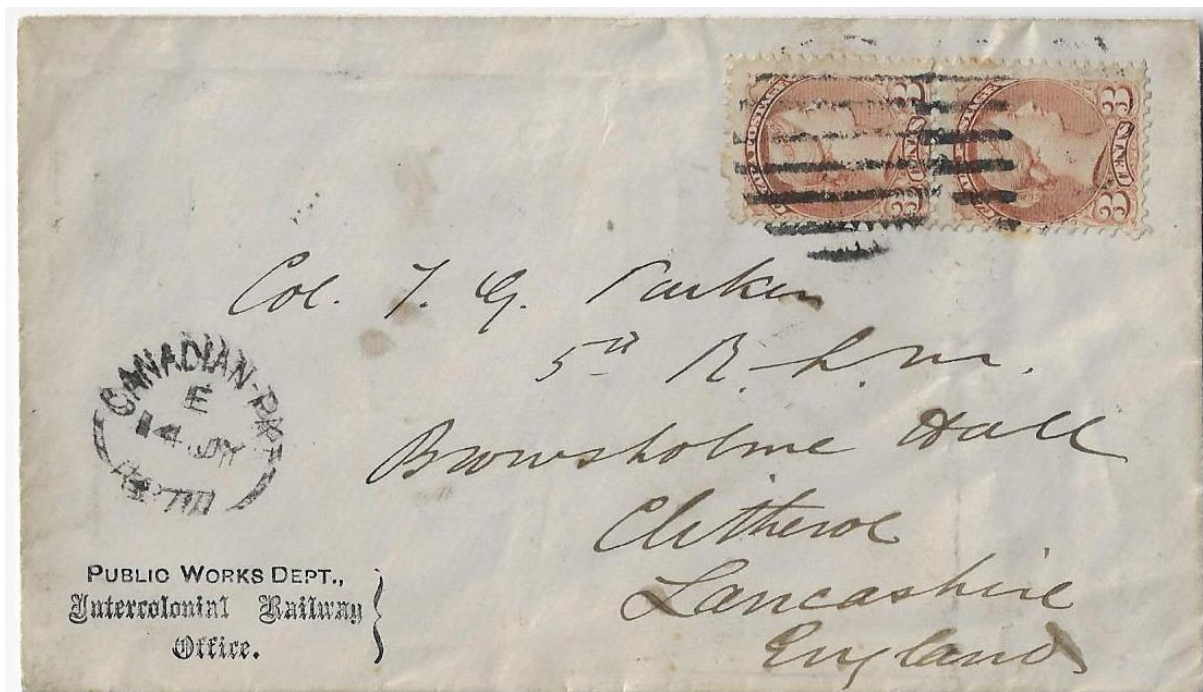 3 CENTS 3
3 CENTS 3
Col. T. G. Parker
5th R. L. M.
Browsholme Hall
Clitheroe
Lancashire
England
CANADIAN-PKT
E
14 JY
PUBLIC WORKS DEPT.,
Intercolonial Railway
Office.